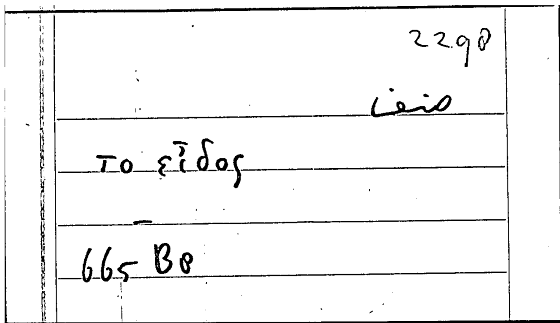 2298
το εἶδος
–
665 B8